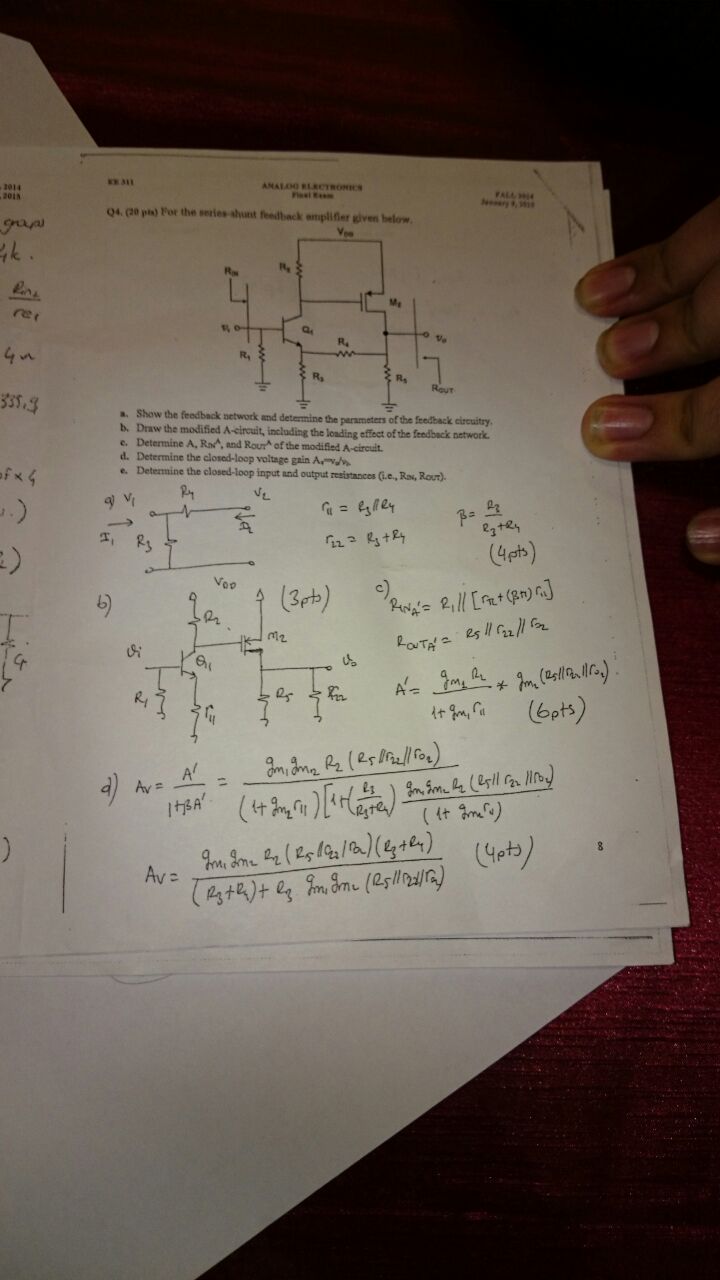 EE 311
ANALOG ELECTRONICS
Final Exam
FALL 2014
2014
2015
Q4. (20 pts) For the series-shunt feedback amplifier given below.
VDD
RIN
R2
M2
vi
Q1
R4
vo
R1
R3
R5
ROUT
a. Show the feedback network and determine the parameters of the feedback circuitry.
b. Draw the modified A-circuit, including the loading effect of the feedback network.
c. Determine A, RINᴬ, and ROUTᴬ of the modified A-circuit.
d. Determine the closed-loop voltage gain Av=vo/vi.
e. Determine the closed-loop input and output resistances (i.e., RIN, ROUT).
a) V1 R4 V2
I1 R3 I2
r11 = R3//R4
r22 = R3+R4
β = R3/(R3+R4)
(4pts)
b) VDD (3pts)
R2
M2
vi
Q1
vo
R1
r11
R5
r22
c) RINA' = R1 // [rπ+(β+1)r11]
ROUTA' = R5 // r22 // ro2
A' = gm1 R2 / (1+gm1 r11) * gm2 (R5//r22//ro2)
(6pts)
d) Av = A'/(1+βA') = gm1 gm2 R2 (R5//r22//ro2) / (1+gm2 r11)[1+(R3/(R3+R4)) gm1 gm2 R2 (R5//r22//ro2)/(1+gm r11)
Av = gm1 gm2 R2 (R5//r22//ro2)(R3+R4) / (R3+R4)+R3 gm1 gm2 (R5//r22//ro2)
(4pts)
8